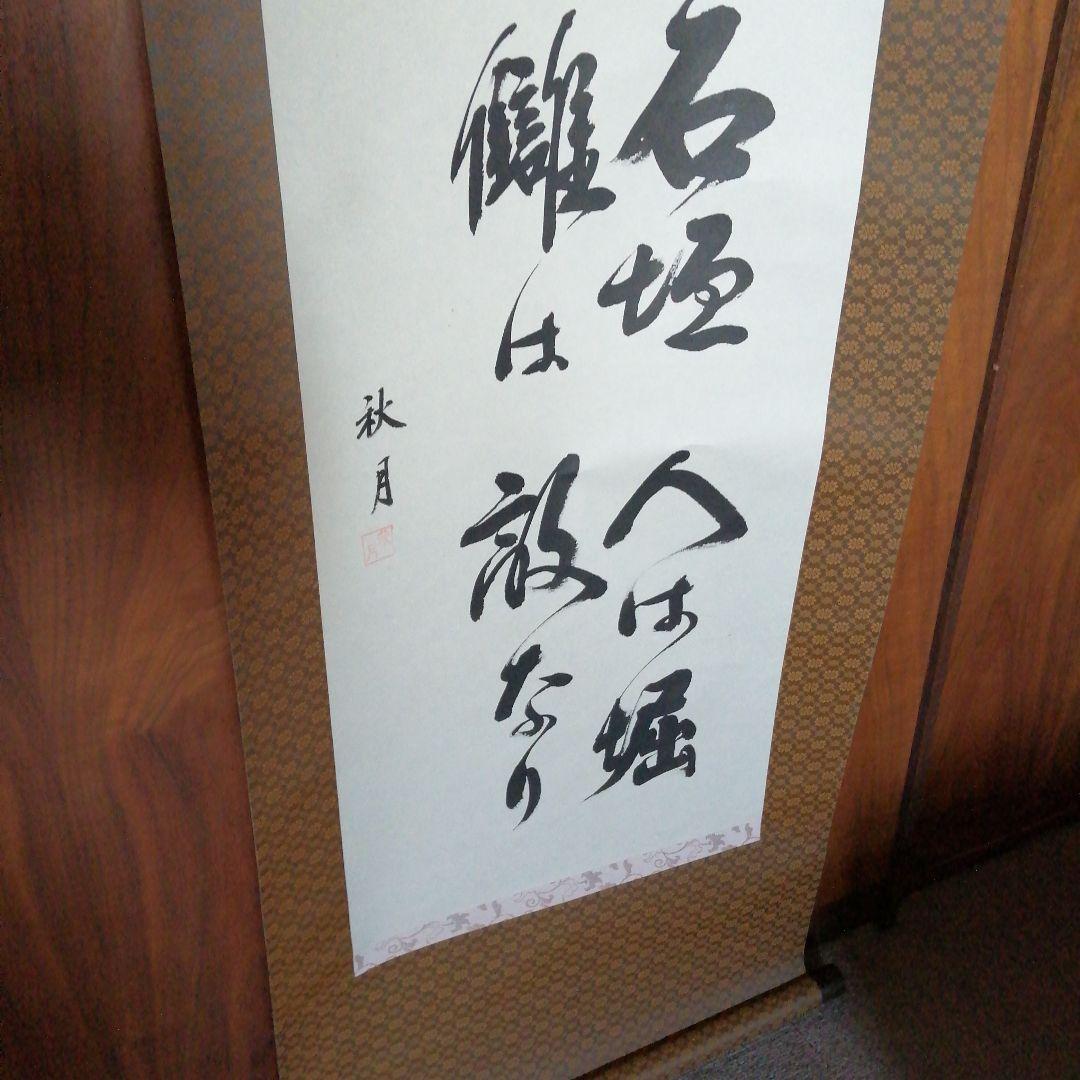 石垣 人は堀
讎は 敵なり
秋月